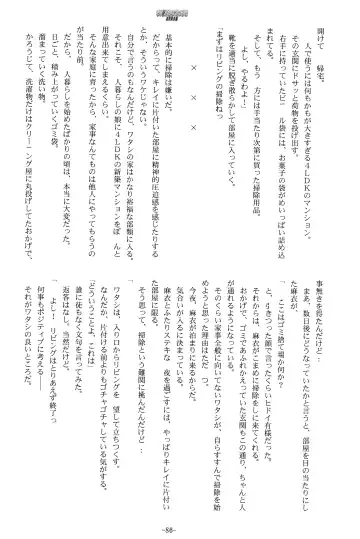 開けて　帰宅。
一人で使うには何もかもが大きすぎる４ＬＤＫのマンション。
その玄関にドサッと荷物を投げ出す。
右手に持っていたビニール袋には、お菓子の袋がめいっぱい詰め込
まれている。
そして、もう一方には手当たり次第に買った掃除用品。
「よし、やるわよ！」
靴を適当に脱ぎ散らかして部屋に入っていく。
「まずはリビングの掃除ねっ」
×　×　×
基本的に掃除は嫌いだ。
だからって、キレイに片付いた部屋に精神的圧迫感を感じたりする
とか、そういうワケじゃない。
自分で言うのもなんだけど、ワタシの家はかなり裕福な部類に入る。
それこそ、一人暮らしの娘に４ＬＤＫの新築マンションをぽーんと
用意出来てしまえるくらい。
そんな家庭に育ったから、家事なんてものは他人にやってもらうの
が当たり前。
だから、一人暮らしを始めたばかりの頃は、本当に大変だった。
日ごとに積み上がっていくゴミ袋。
溜まっていく洗い物。
かろうじて、洗濯物だけはクリーニング屋に丸投げしてたおかげで、
事無きを得たんだけど…
まあ、数日後にどうなっていたかと言うと、部屋を目の当たりにし
た麻衣が、
「ここはゴミ捨て場か何か？」
と、引きつった顔で言ったくらいヒドイ有様だった。
それからは、麻衣がこまめに掃除をしに来てくれる。
おかげで、ゴミであふれかえっていた玄関もこの通り、ちゃんと人
が通れるようになっている。
そのくらい家事全般がダメなワタシが、自らすすんで掃除を始
めようと思った理由はただ一つ。
今夜、麻衣が泊まりに来るからだ。
気合いが入るに決まっている。
麻衣とふたりステキな一夜を過ごすには、やっぱりキレイに片付い
た部屋に限る。
そう思って、掃除という難関に挑んだんだけど…
ワタシは、入り口からリビングを一望して立ちつくす。
なんだか、片付ける前よりもゴチャゴチャしている気がする。
「どういうことよ、これは」
誰にともなく文句を言ってみた。
返答はなし。当然だけど。
「よし！　リビングはとりあえず終了っ」
何事もポジティブに考える――
それがワタシの良いところだ。
-86-